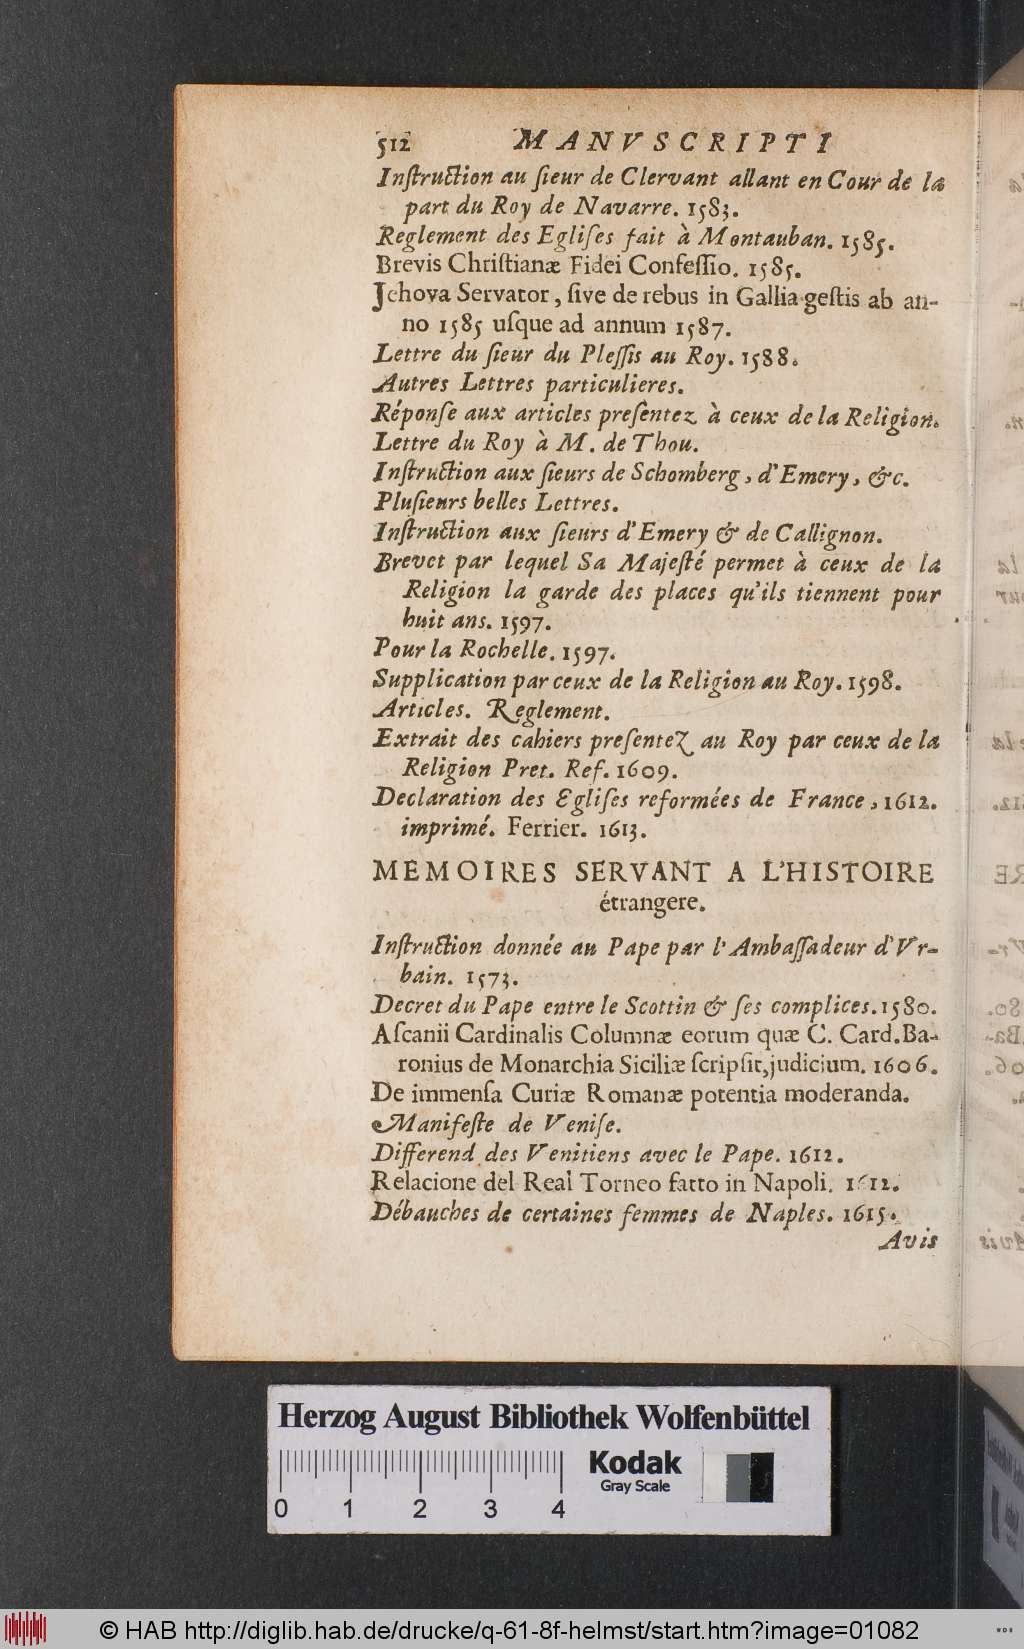 512 MANVSCRIPTI
Inſtruction au ſieur de Clervant allant en Cour de la
part du Roy de Navarre. 1583.
Reglement des Egliſes fait à Montauban. 1585.
Brevis Chriſtianæ Fidei Confeſſio. 1585.
Jehova Servator, ſive de rebus in Gallia geſtis ab an-
no 1585 uſque ad annum 1587.
Lettre du ſieur du Pleſſis au Roy. 1588.
Autres Lettres particulieres.
Réponſe aux articles preſentez à ceux de la Religion.
Lettre du Roy à M. de Thou.
Inſtruction aux ſieurs de Schomberg, d'Emery, &c.
Pluſieurs belles Lettres.
Inſtruction aux ſieurs d'Emery & de Callignon.
Brevet par lequel Sa Majeſté permet à ceux de la
Religion la garde des places qu'ils tiennent pour
huit ans. 1597.
Pour la Rochelle. 1597.
Supplication par ceux de la Religion au Roy. 1598.
Articles. Reglement.
Extrait des cahiers preſentez au Roy par ceux de la
Religion Pret. Ref. 1609.
Declaration des Egliſes reformées de France, 1612.
imprimé. Ferrier. 1613.
MEMOIRES SERVANT A L'HISTOIRE
étrangere.
Inſtruction donnée au Pape par l'Ambaſſadeur d'Vr-
bain. 1573.
Decret du Pape entre le Scottin & ſes complices. 1580.
Aſcanii Cardinalis Columnæ eorum quæ C. Card. Ba-
ronius de Monarchia Siciliæ ſcripſit, judicium. 1606.
De immenſa Curiæ Romanæ potentia moderanda.
Manifeſte de Veniſe.
Differend des Venitiens avec le Pape. 1612.
Relacione del Real Torneo fatto in Napoli. 1612.
Débauches de certaines femmes de Naples. 1615.
Avis
Herzog August Bibliothek Wolfenbüttel
Kodak
Gray Scale
0 1 2 3 4
© HAB http://diglib.hab.de/drucke/q-61-8f-helmst/start.htm?image=01082